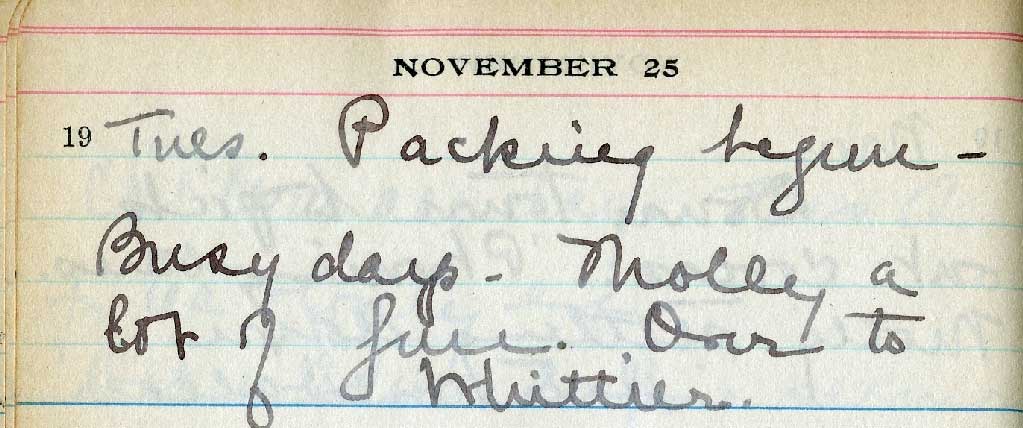 NOVEMBER 25
19 Tues. Packing begun -
Busy days - Molly a
lot of fun. Over to
Whittier.